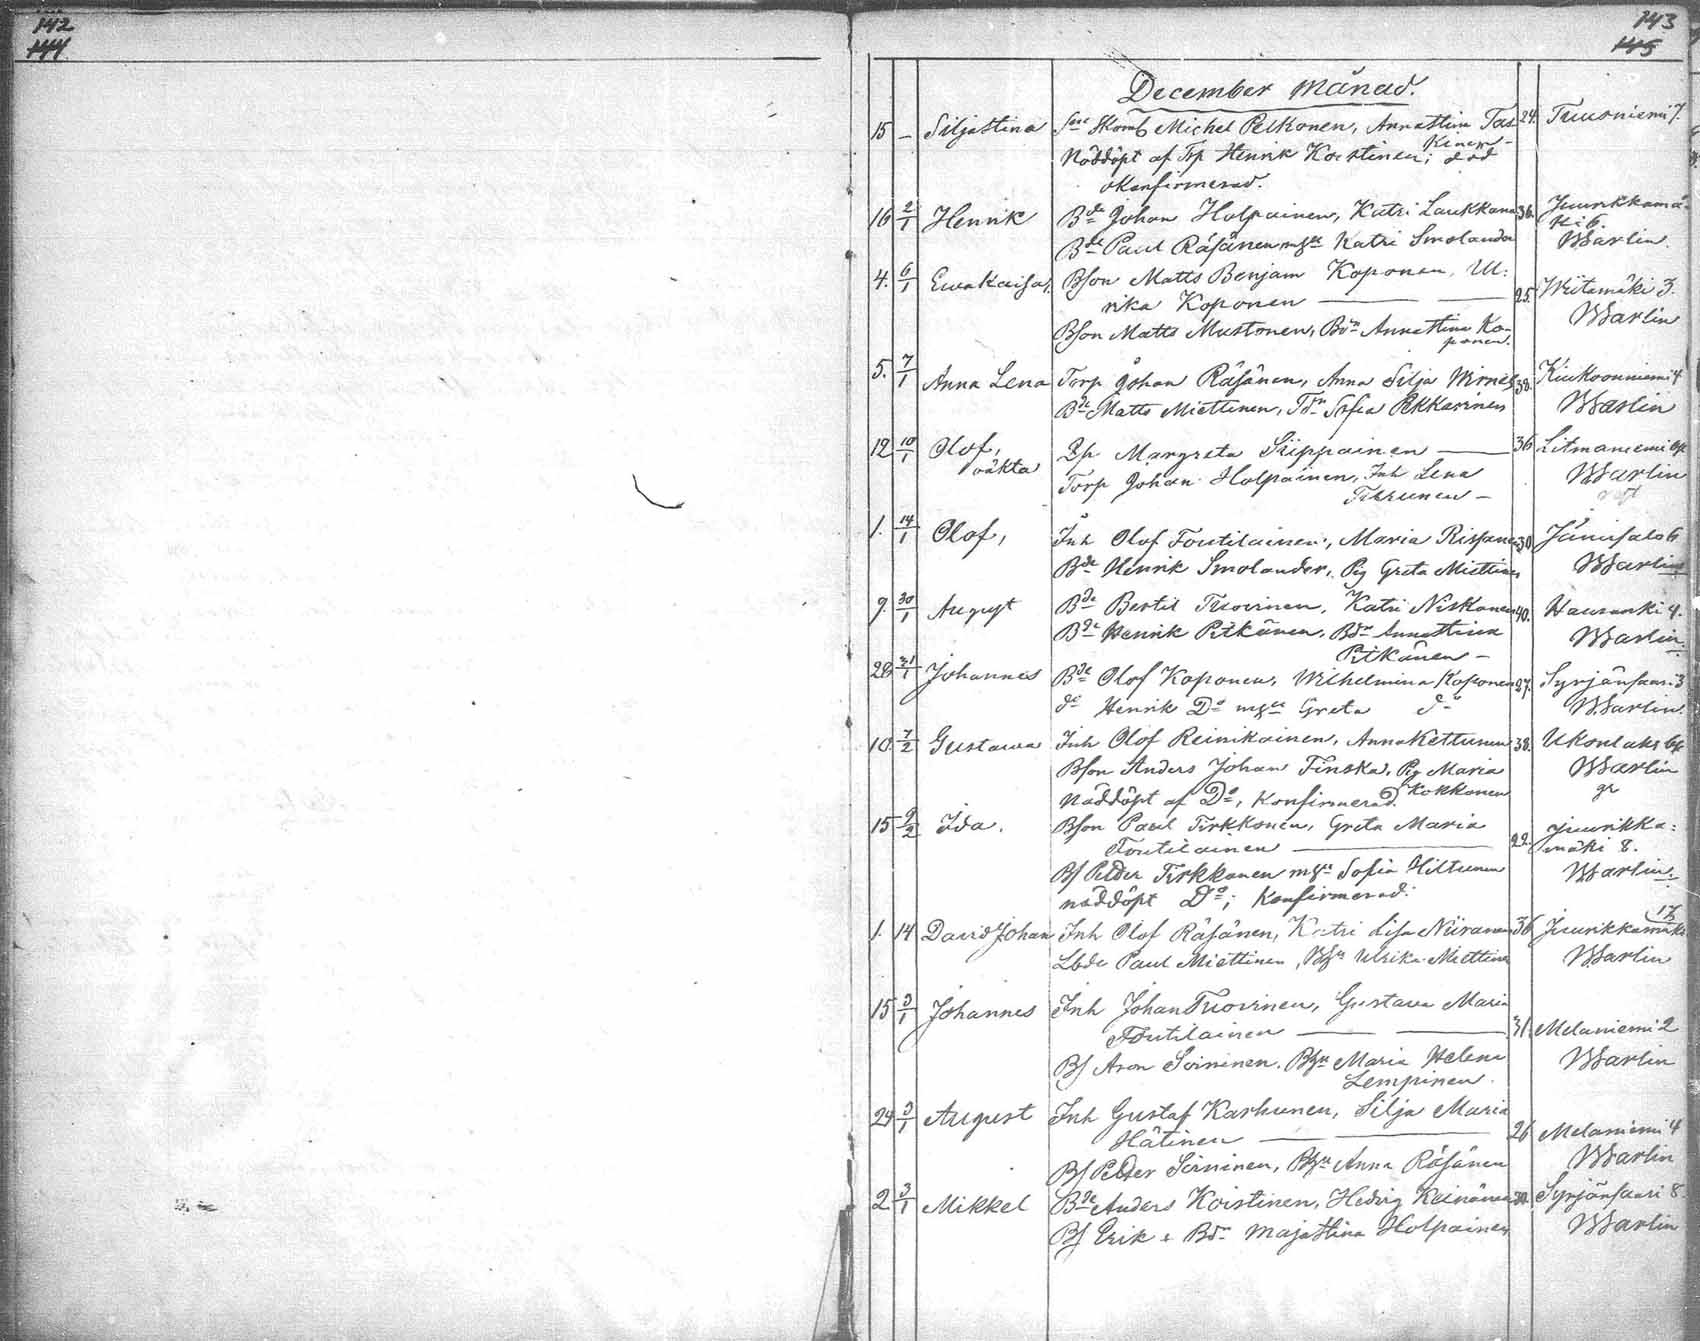 142
144
143
145
December Månad.
15 – Siljastina Skom Michel Pelkonen, Annastina Tas- 24. Tuusniemi 7.
kinen –
Nöddöpt af Trp Henrik Koistinen; död
okonfirmerad.
16 2/1 Henrik Bde Johan Holpainen, Katri Laukkanen 36. Juurikkamä-
ki 6.
Bde Paul Räsänen m hu Katri Smolander Warlin.
4. 6/1 Eva Kaisa, Bson Matts Benjam Koponen, Ul:
rika Koponen 25. Wiitamäki 3.
Warlin
Bson Matts Mustonen, Bdr Annastina Ko-
ponen.
5. 7/1 Anna Lena Torp Johan Räsänen, Anna Silja Wirnes 38. Kiukoonniemi 4
Bde Matts Miettinen, Tdr Sofia Pekkarinen Warlin
12 10/1 Olof, Pig Margreta Siippainen 36 Litmaniemi
oäkta Warlin
Torp Johan Holpainen, Inh Lena
Tihrunen –
1. 14/1 Olof, Inh Olof Toutilainen, Maria Rissanen 30 Jänissalo 6
Bde Henrik Smolander, Pig Greta Miettinen Warlin
9. 30/1 August Bde Bertil Tuovinen, Katri Niskanen 40. Hausanki 4.
Bde Henrik Pitkänen, Bdr Annastina Warlin
Pitkänen –
28 31/1 Johannes Bde Olof Koponen, Wilhelmina Koponen 27. Syrjänsaari 3
do Henrik Do m hu Greta do Warlin.
10 7/2 Gustava Inh Olof Reinikainen, Anna Kettunen 38. Uksonlaks
Bson Anders Johan Finska, Pig Maria Warlin
Kokkonen gr
Nöddöpt af Do, Konfirmerad.
15 9/2 Ida. Bson Paul Tirkkonen, Greta Maria
Toutilainen 22. Juurikka:
mäki 8.
Bs Petter Tirkkonen m hu Sofia Hiltunen Warlin.
nöddöpt Do; Konfirmerad.
1. 14 David Johan Inh Olof Räsänen, Katri Lisa Niiranen 36 Juurikkamäki
17
Lbde Paul Miettinen, Bhu Ulrika Miettinen Warlin
15 3/1 Johannes Inh Johan Tuovinen, Gustava Maria
Toutilainen 31. Melaniemi 2
Bs Aron Soininen, Bhu Maria Helena Warlin
Lempinen.
24 3/1 August Inh Gustaf Karhunen, Silja Maria
Hätinen 26 Melaniemi 4
Bs Petter Soininen, Bhu Anna Räsänen Warlin
2 3/1 Mikkel Bde Anders Koistinen, Hedvig Kainänen Syrjänsaari 8
Bs Erik & Bdr Majastina Holpainen Warlin